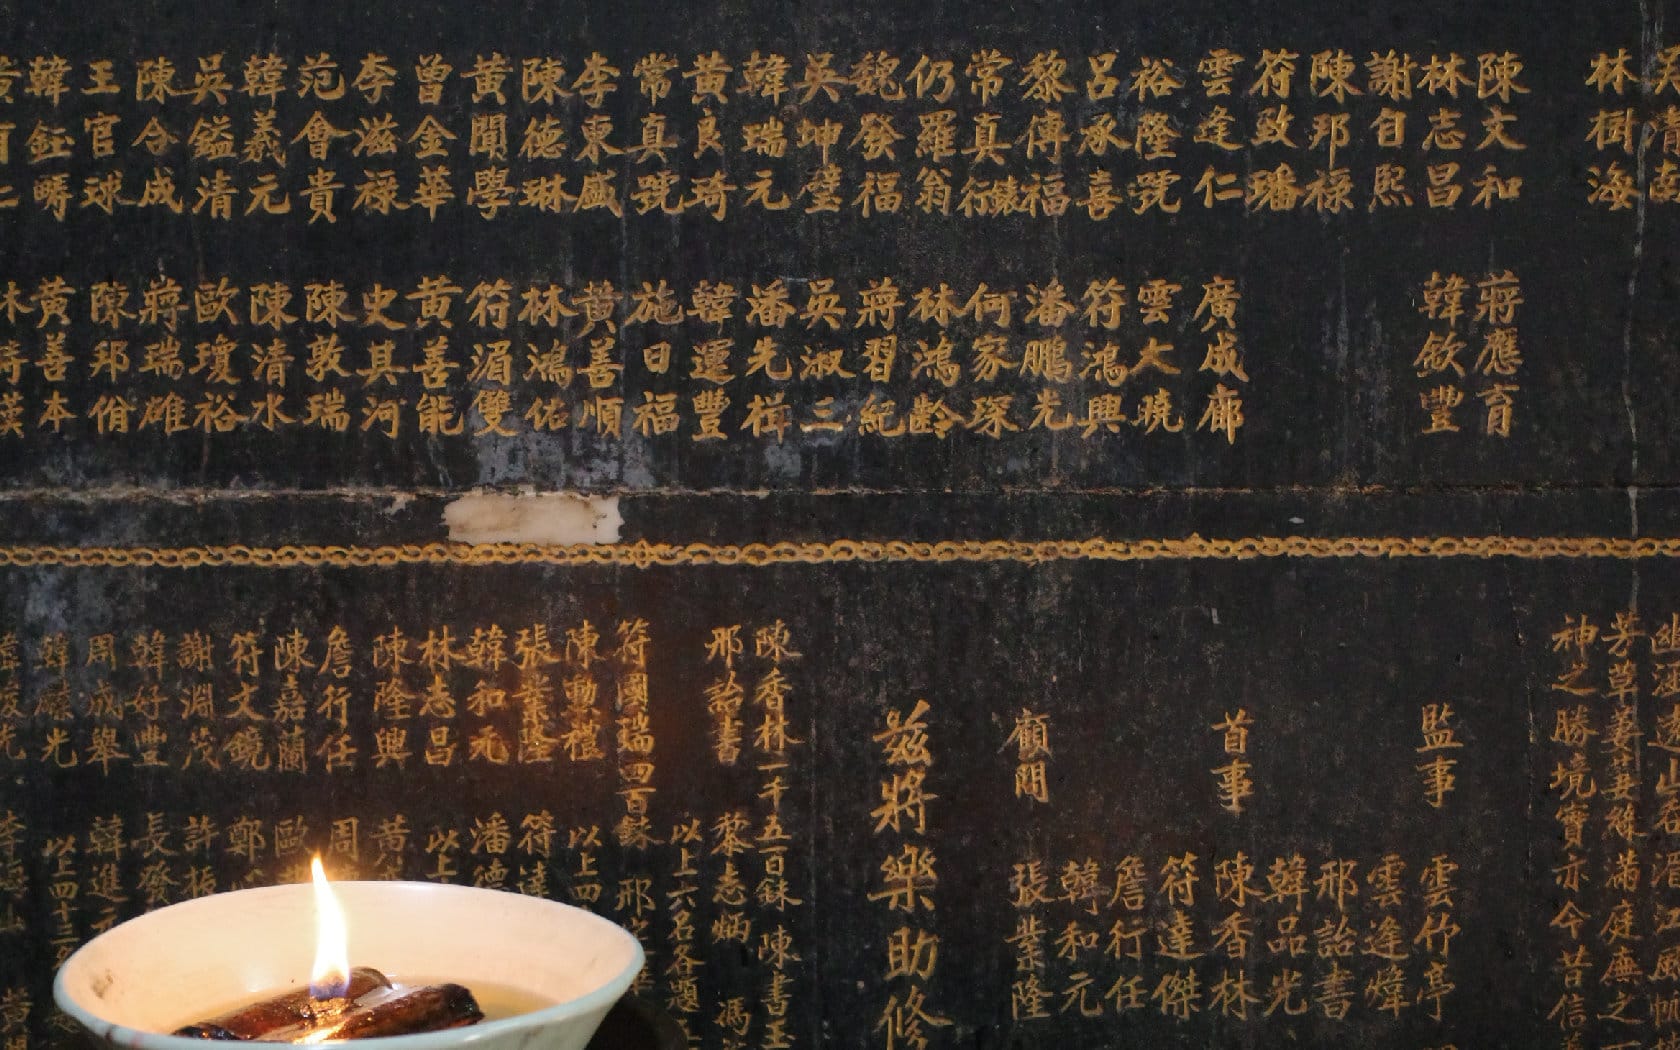 林樹海
陳文和
林志昌
謝自熙
陳邦祿
符致璠
雲逢仁
裕隆號
呂承喜
黎傳福
常真行錶
仍羅翁
魏發福
吳坤璧
韓瑞元
黃良琦
常真號
李東盛
陳德琳
黃聞學
曾金華
李滋祿
范會貴
韓義元
吳鎰清
陳合成
王官球
韓鈺疇
蔣應育
韓欽豐
廣成廊
雲大曉
符鴻興
潘鵬光
何家琛
林鴻齡
蔣習紀
吳淑三
潘先楫
韓運豐
施日福
黃善順
林鴻佑
符湄雙
黃善能
史其河
陳敦瑞
陳清水
歐瓊裕
蔣瑞雄
陳邦偹
黃善本
芳草萋萋綠滿庭廡之
神之勝境實亦今昔信
監事
雲竹亭
雲逢煒
邢詒書
韓品光
首事
陳香林
符達傑
詹行任
韓和元
顧問
張業隆
茲將樂助修
陳香林一千五百銖 陳書玉
邢詒書 黎志炳 馮
以上六名各題
符國瑞四百銖 邢
陳動禮 以上四
張業隆 符達
韓和元 潘德
林志昌 以上
陳隆興 黃
詹行任 周
陳嘉蘭 歐
符文鏡 鄭
謝淵茂 許振
韓好豐 長發
周成舉 韓進元
韓驥光 以上四十三